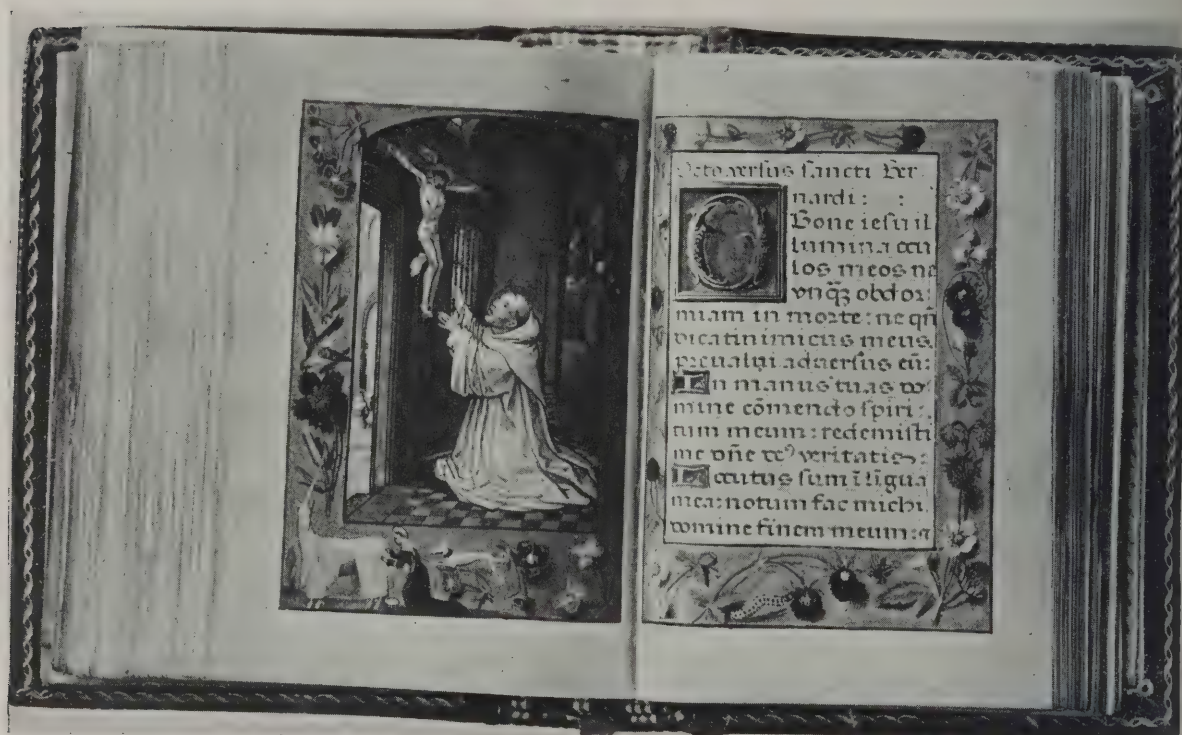 Octo versus sancti Ber
nardi :   :
Bone iesu il
lumina ocu
los meos ne
vnq̄ꝫ obdor:
miam in morte: ne qn̄
dicat inimicus meus
preualui aduersus eū:
In manus tuas do
mine cōmendo spiri:
tum meum: redemisti
me dn̄e
veritatis:
Locutus sum ī ligua
mea: notum fac michi
domine finem meum: a